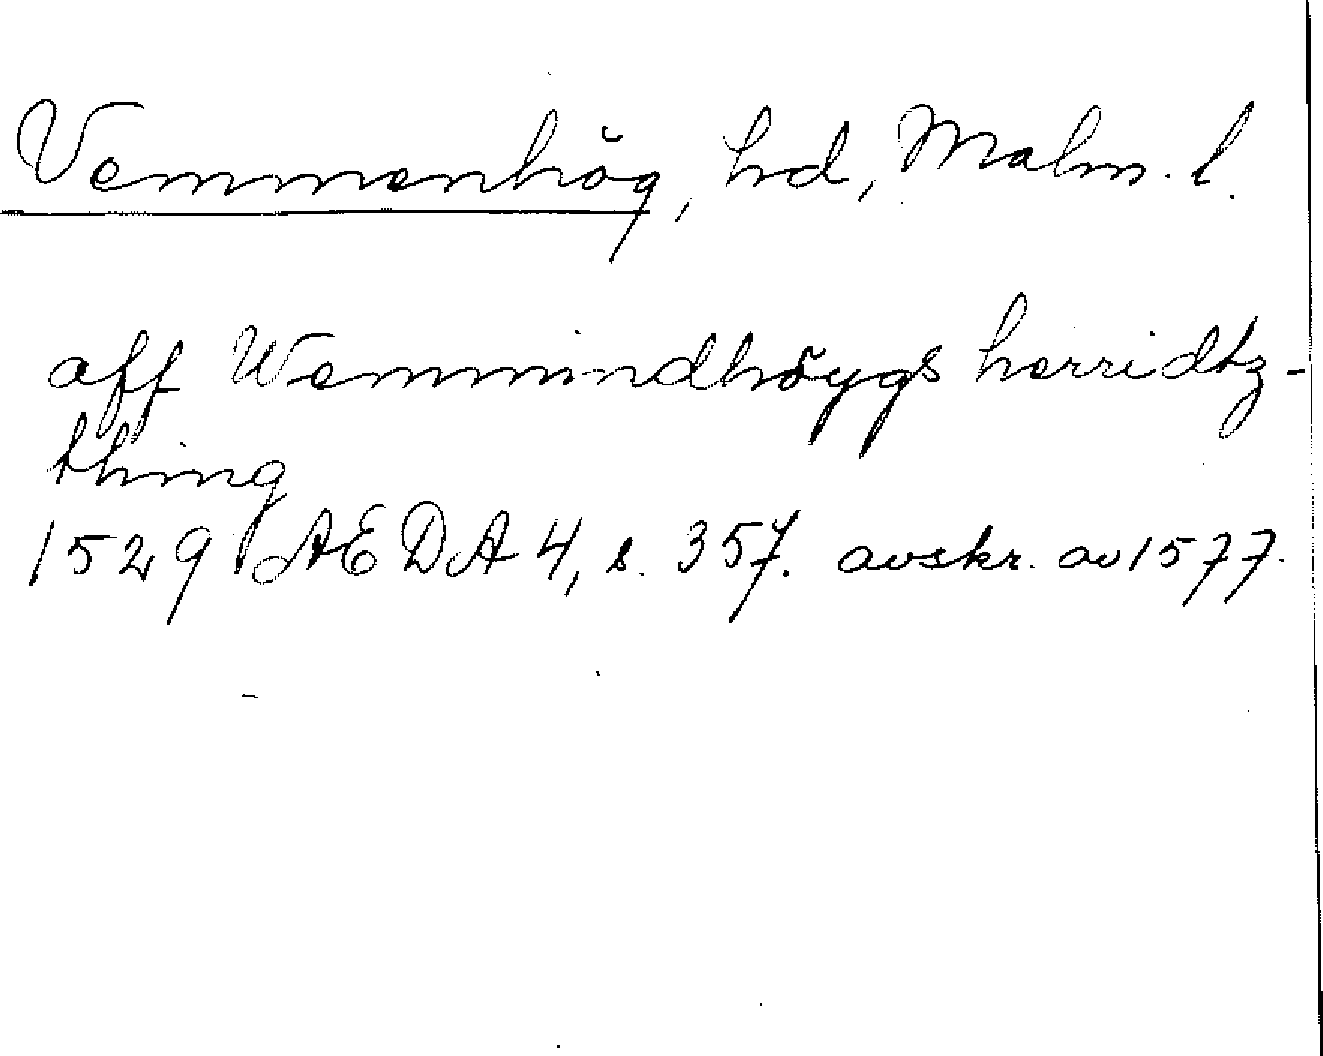 Vemmenhög, hd, Malm. l.
aff Wemmindhöygs herridtz-
thing
1529 AEDA 4, s. 357. avskr. av 1577.